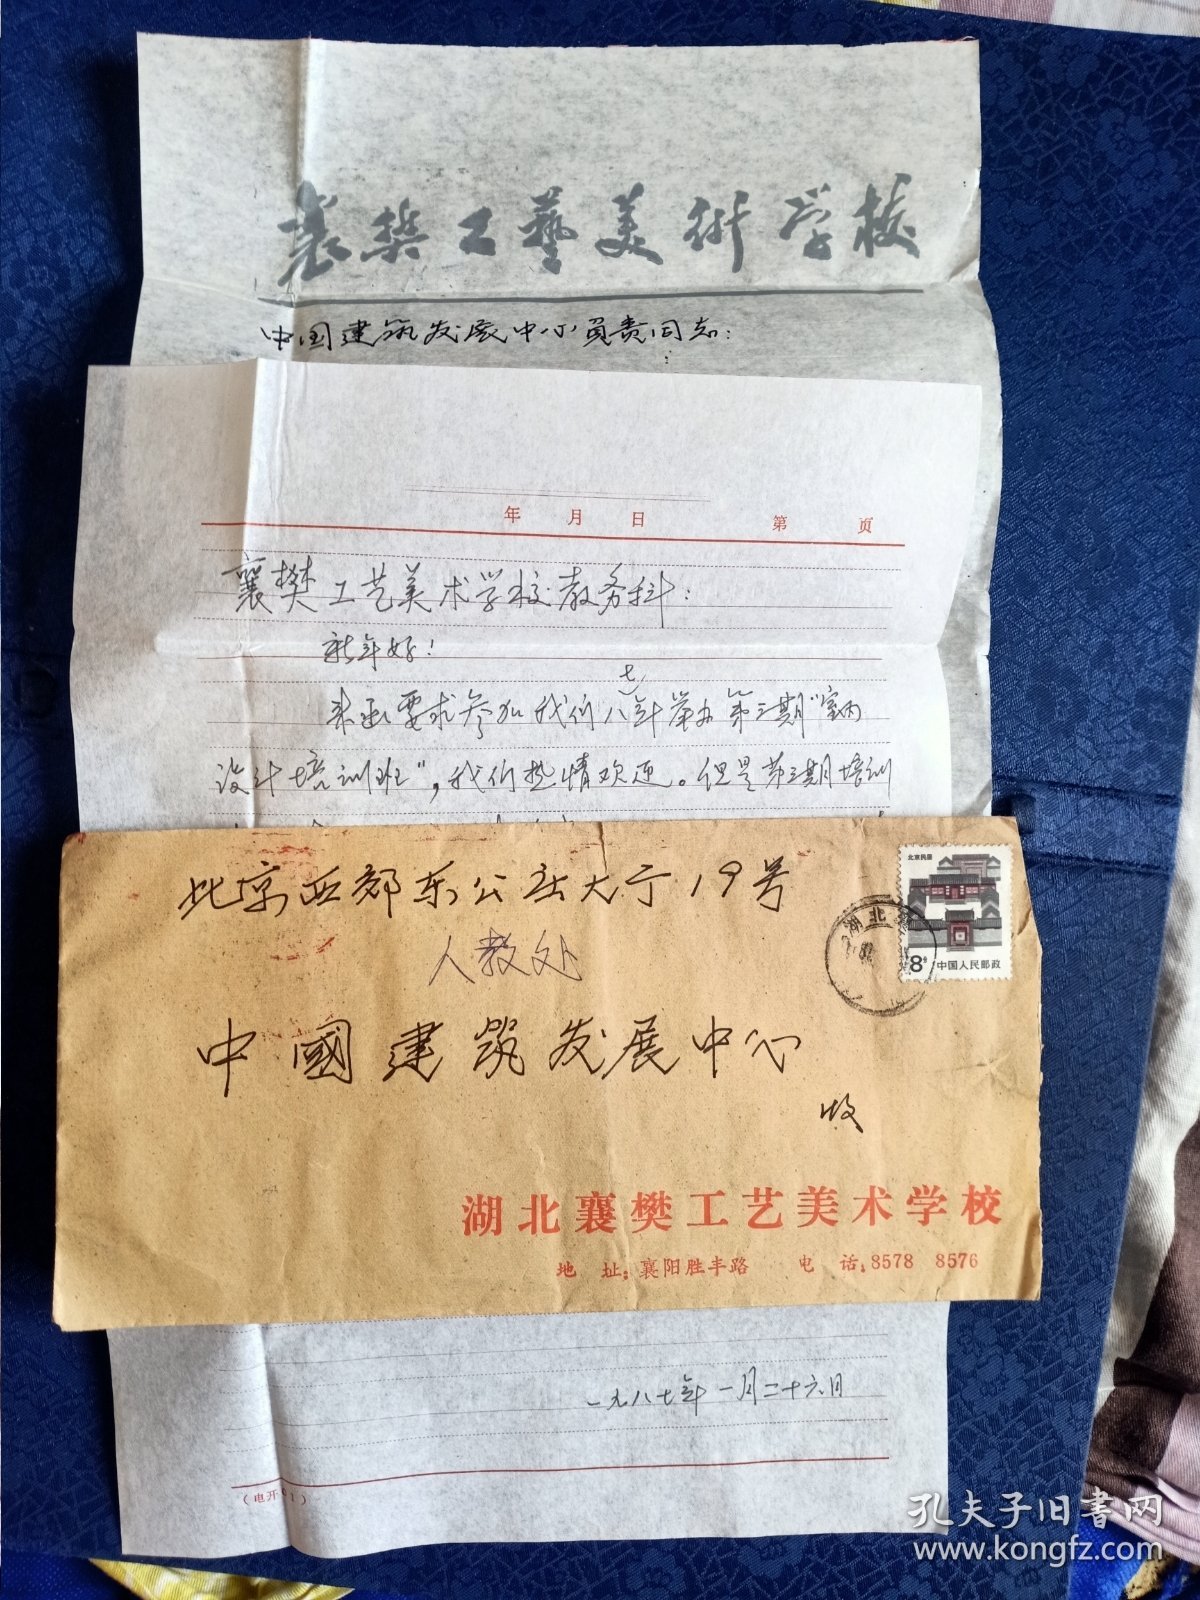 襄樊工艺美術学校
中国建筑发展中心负责同志：
年 月 日 第 页
襄樊工艺美术学校教务科：
新年好！
七
来函要求参加我们八年举办第三期“室内
设计培训班”，我们热情欢迎。但是第三期培训
北京西郊东公庄大厅19号
人教处
中國建筑发展中心
收
北京民居
8分 中国人民邮政
湖北襄
湖北襄樊工艺美术学校
地 址：襄阳胜丰路 电 话：8578 8576
一九八七年一月二十六日
孔夫子旧书网
www.kongfz.com